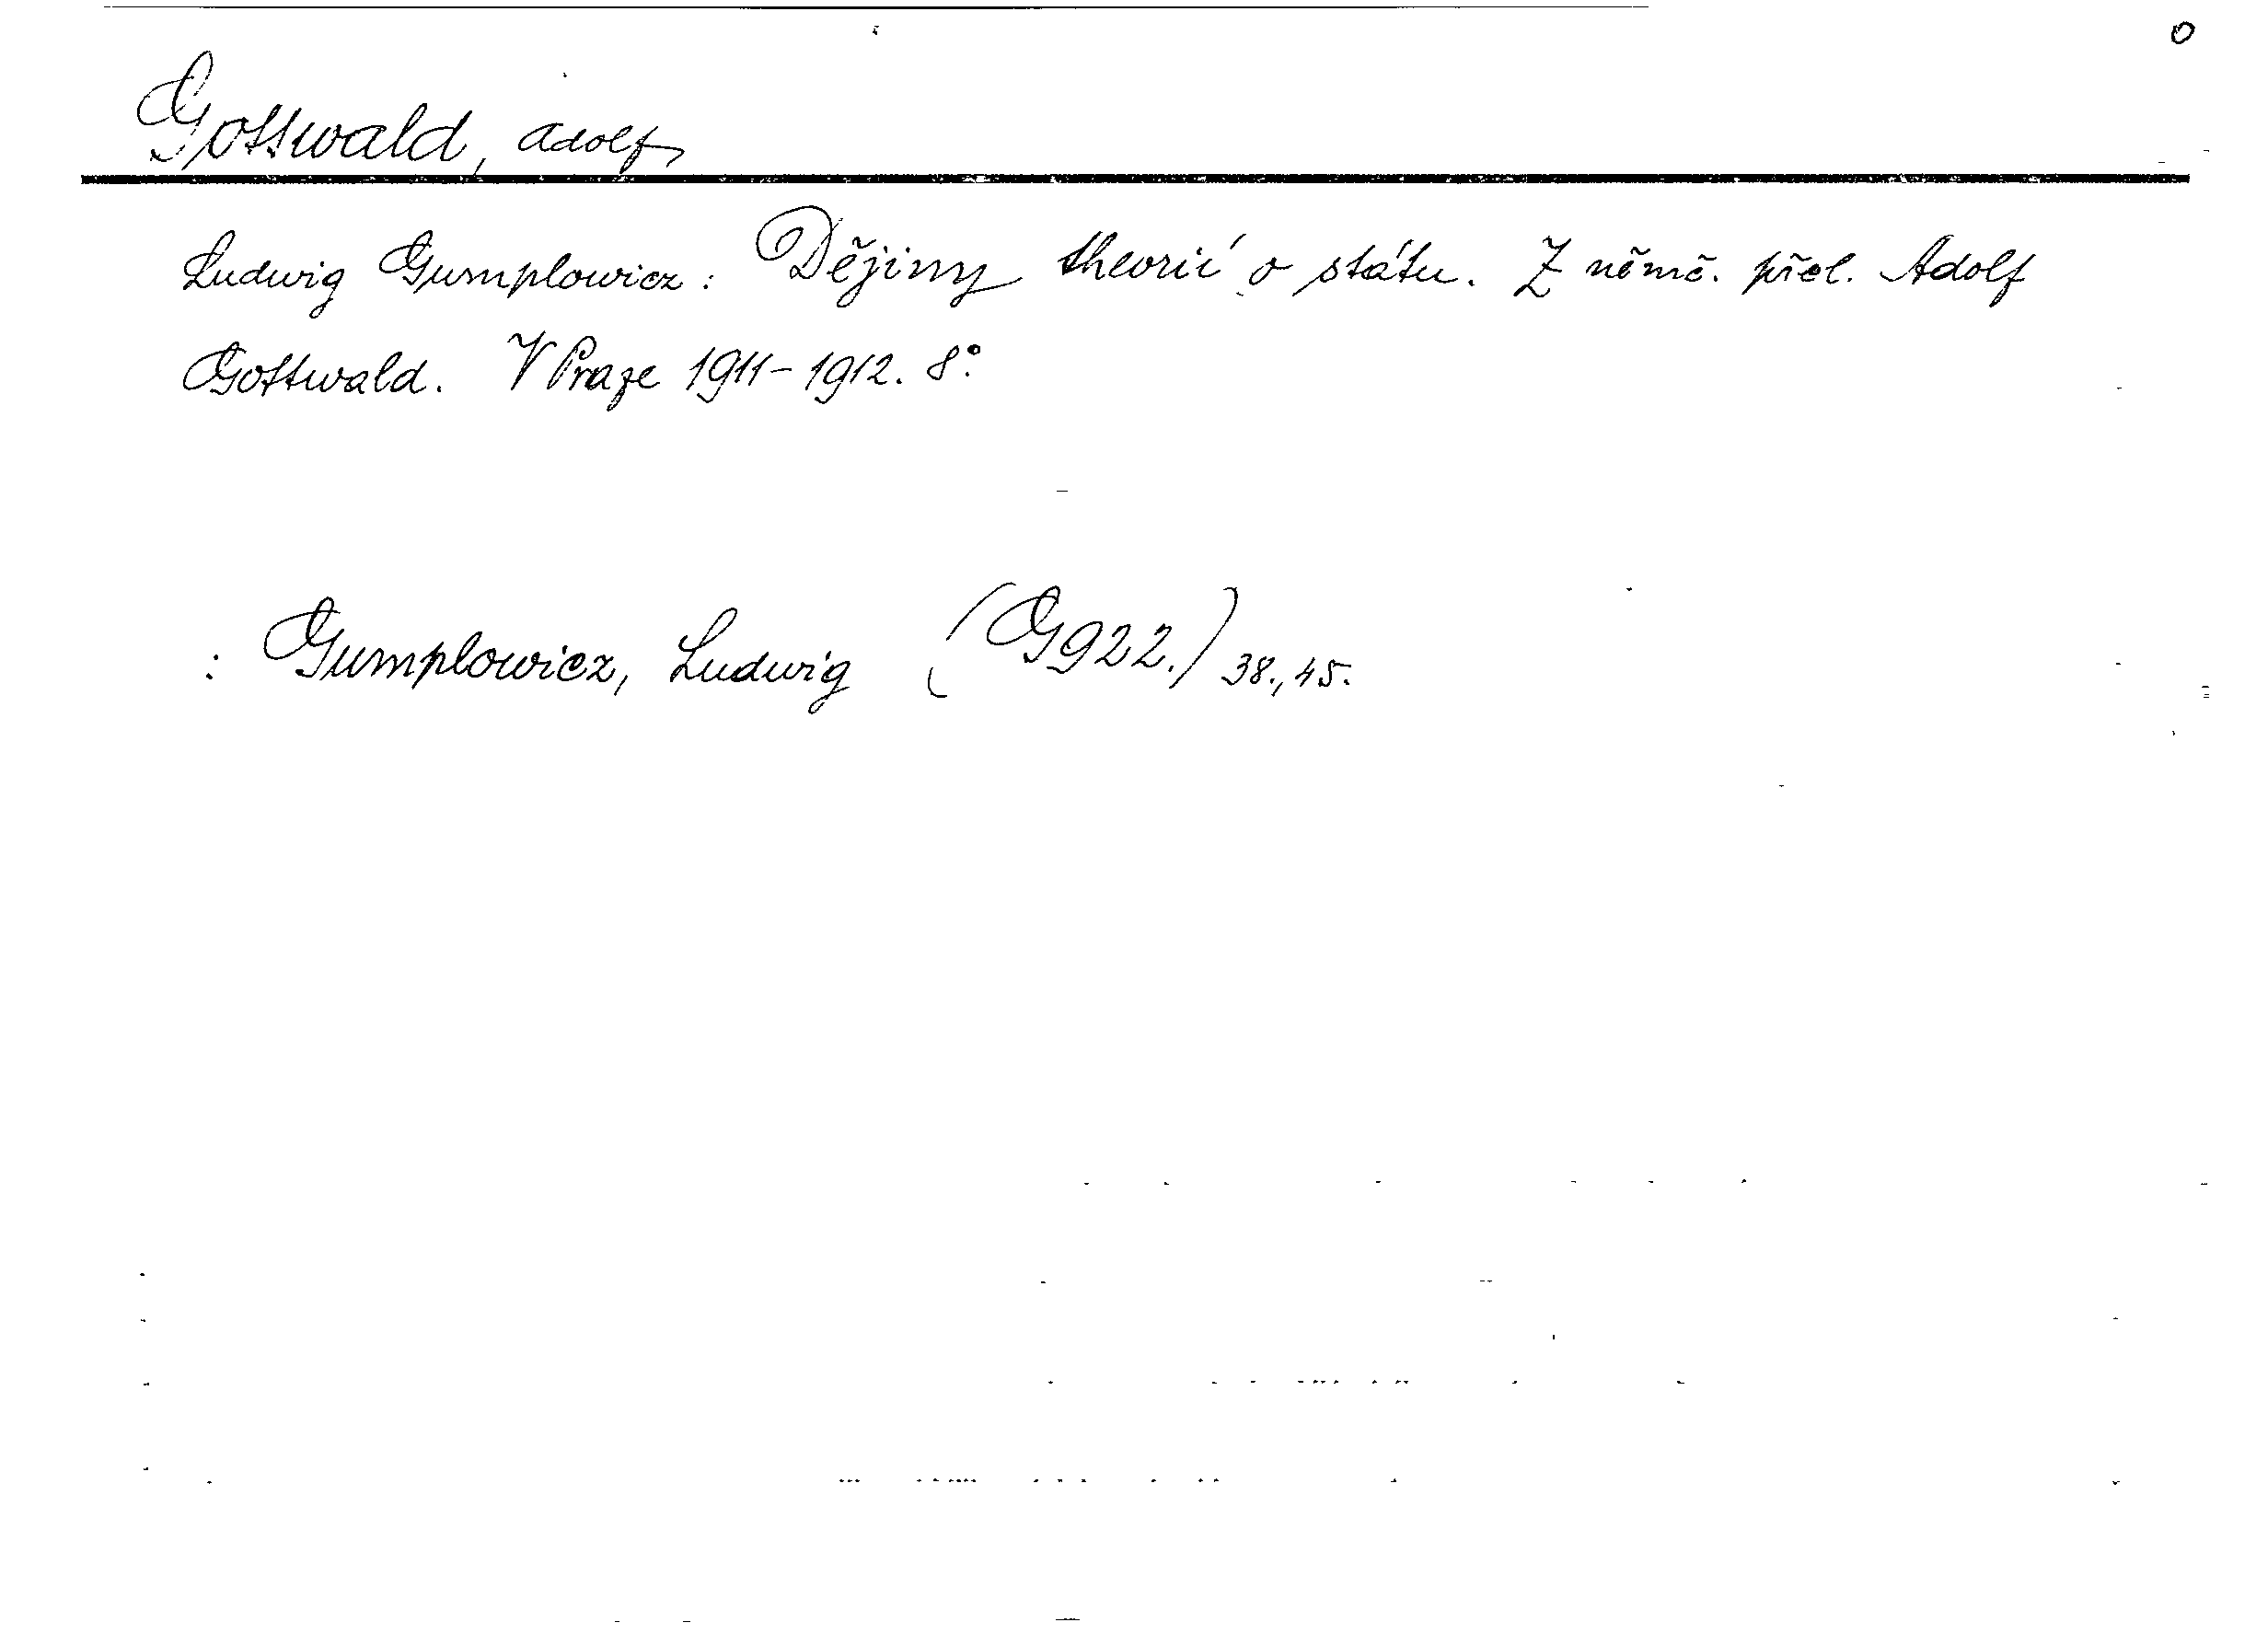 Gottwald, Adolf
Ludwig Gumplowicz: Dějiny theorií o státu. Z něm. přel. Adolf
Gottwald. V Praze 1911-1912. 8°.
: Gumplowicz, Ludwig (G922.) 38., 45.